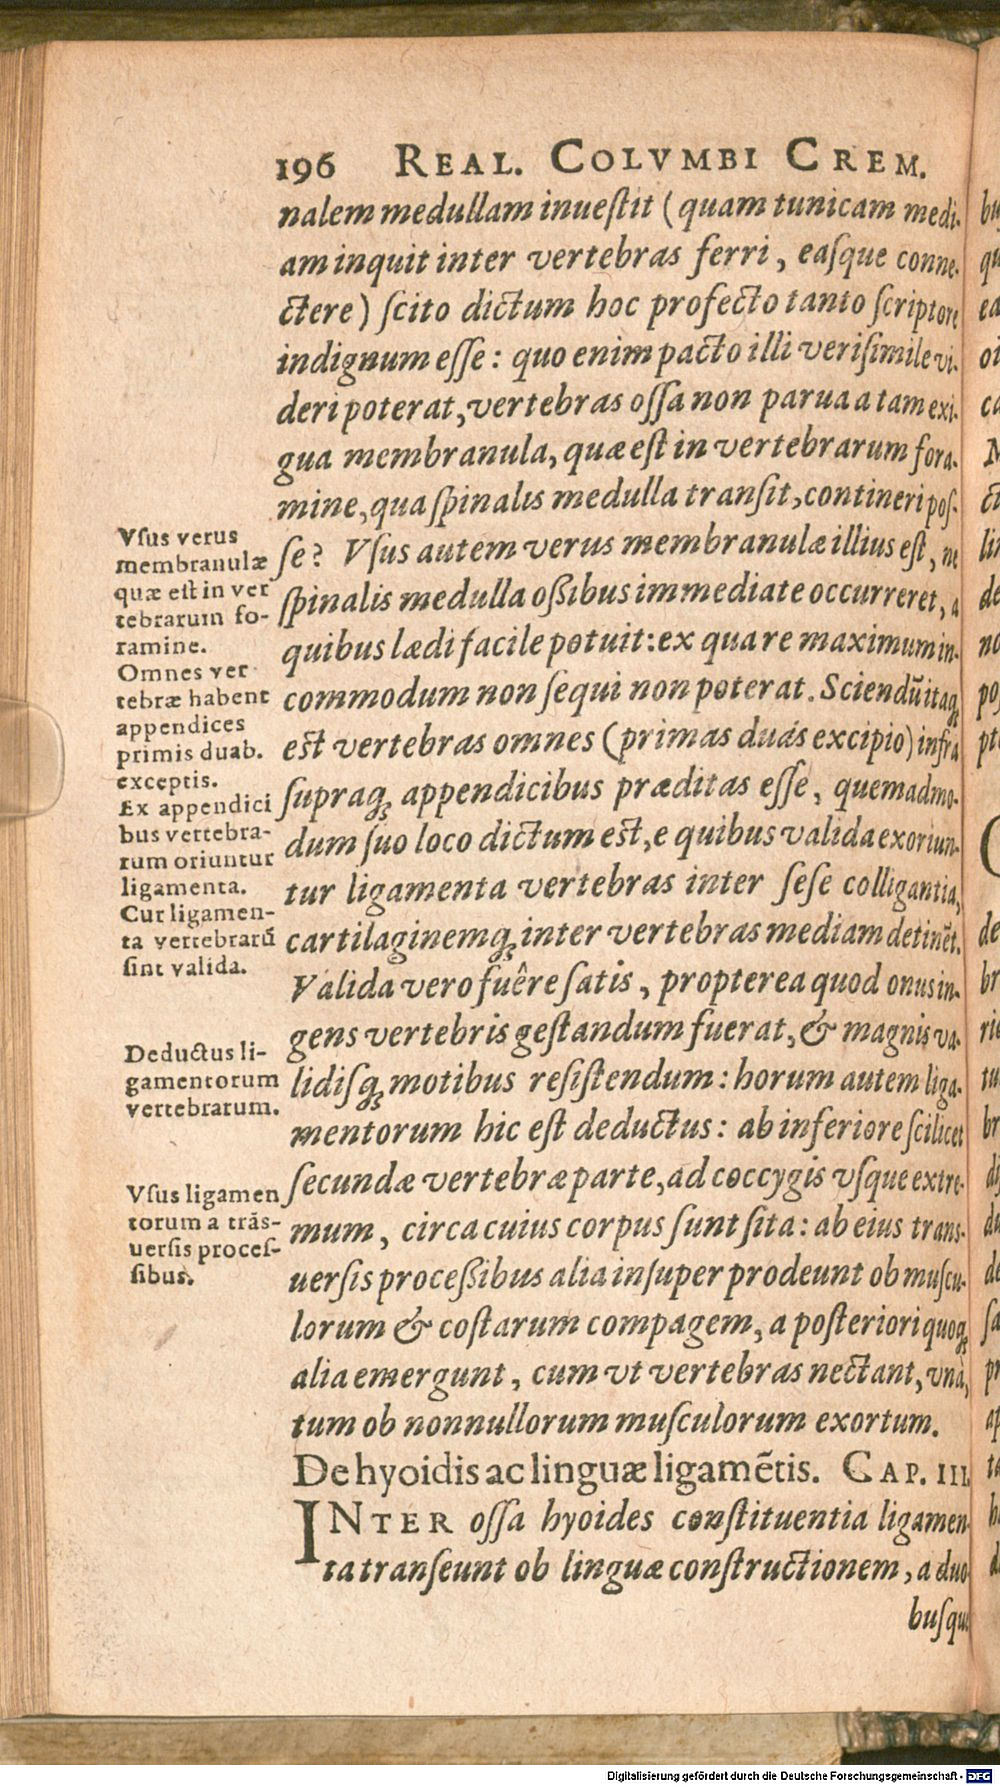 196 REAL. COLVMBI CREM.
nalem medullam inueſtit (quam tunicam medi-
am inquit inter vertebras ferri, eaſque conne-
ctere) ſcito dictum hoc profecto tanto ſcriptore
indignum eſſe: quo enim pacto illi veriſimile vi-
deri poterat, vertebras oſſa non parua a tam exi-
gua membranula, quæ eſt in vertebrarum fora-
mine, qua ſpinalis medulla tranſit, contineri poſ-
ſe? Vſus autem verus membranulæ illius eſt, ne
ſpinalis medulla oßibus immediate occurreret, a
quibus lædi facile potuit: ex qua re maximum in-
commodum non ſequi non poterat. Sciendũ itaq;
eſt vertebras omnes (primas duas excipio) infra
ſupraq; appendicibus præditas eſſe, quemadmo-
dum ſuo loco dictum eſt, e quibus valida exoriun-
tur ligamenta vertebras inter ſeſe colligantia,
cartilaginemq; inter vertebras mediam detinẽt.
Valida vero fuêre ſatis, propterea quod onus in-
gens vertebris geſtandum fuerat, & magnis va-
lidiſq; motibus reſiſtendum: horum autem liga-
mentorum hic eſt deductus: ab inferiore ſcilicet
ſecundæ vertebræ parte, ad coccygis vſque extre-
mum, circa cuius corpus ſunt ſita: ab eius trans-
uerſis proceßibus alia inſuper prodeunt ob muſcu-
lorum & coſtarum compagem, a poſteriori quoq;
alia emergunt, cum vt vertebras nectant, vnà,
tum ob nonnullorum muſculorum exortum.
De hyoidis ac linguæ ligamẽtis. CAP. III.
INTER oſſa hyoides conſtituentia ligamen-
ta tranſeunt ob linguæ conſtructionem, a duo
buſque
Vſus verus
membranulæ
quæ eſt in ver
tebrarum fo-
ramine.
Omnes ver
tebræ habent
appendices
primis duab.
exceptis.
Ex appendici
bus vertebra-
rum oriuntur
ligamenta.
Cur ligamen-
ta vertebrarũ
ſint valida.
Deductus li-
gamentorum
vertebrarum.
Vſus ligamen
torum a trãs-
uerſis proceſ-
ſibus.
Digitalisierung gefördert durch die Deutsche Forschungsgemeinschaft - DFG